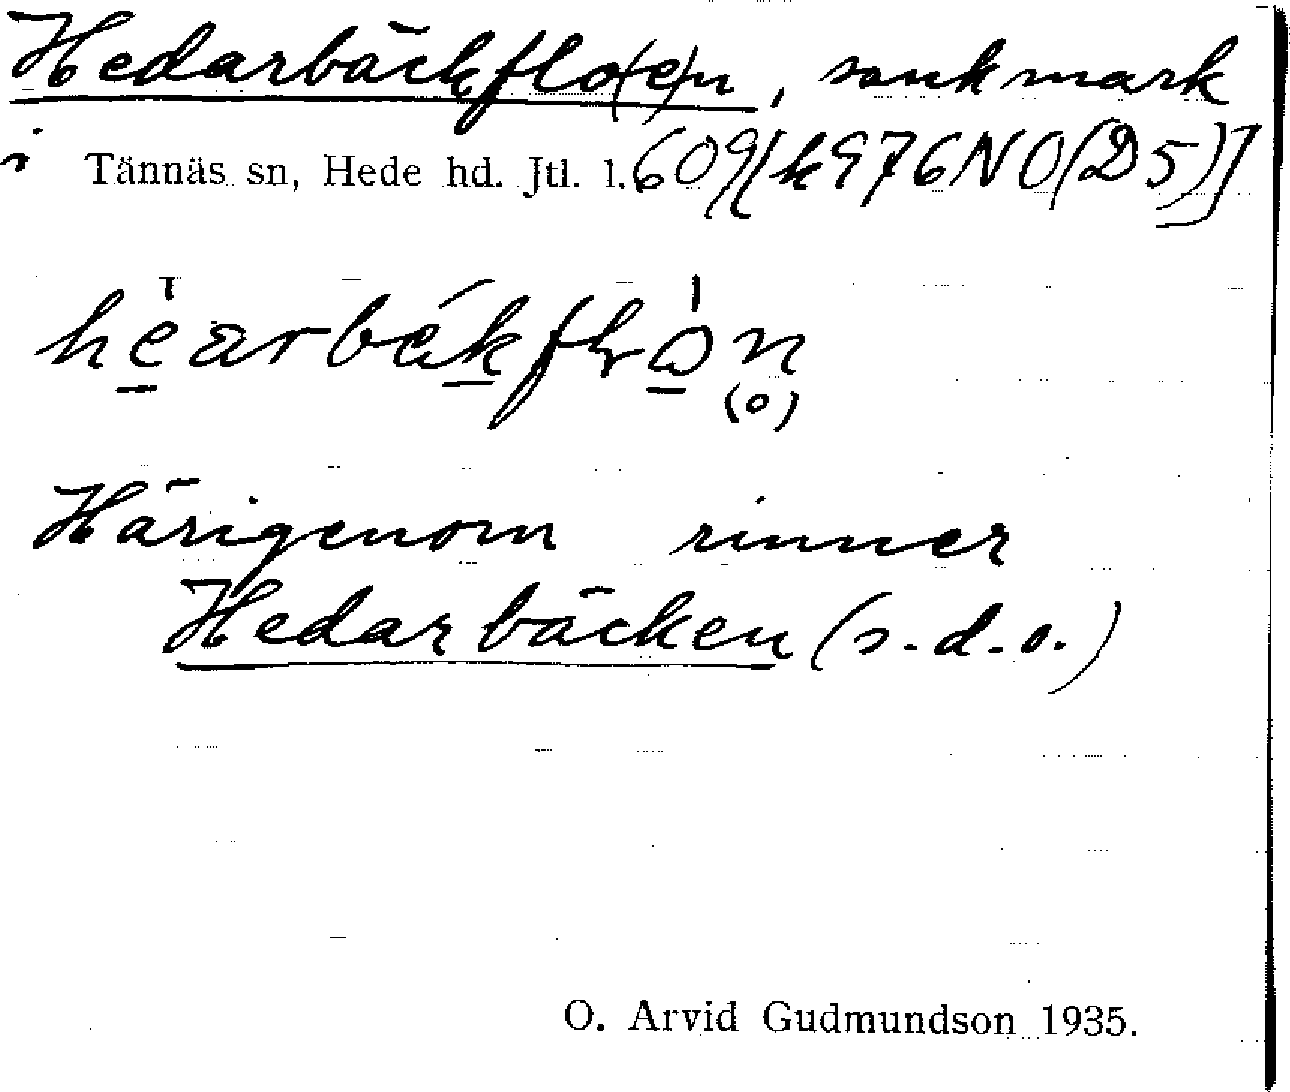 Hedarbäckflo(e)n, sankmark
i Tännäs sn, Hede hd. Jtl. l. 609 [k976NO(D5)]
Härigenom rinner
Hedarbäcken (s.d.o.)
O. Arvid Gudmundson 1935.